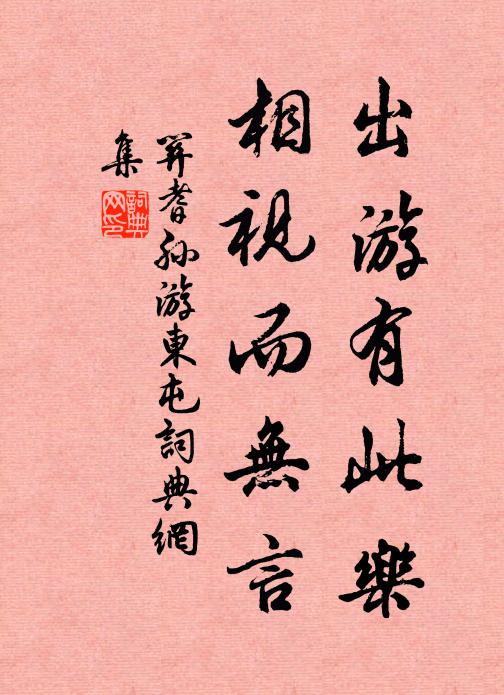 出游有此樂
相視而無言
羿耆孙游東屯詞典網
集
詞典
网印